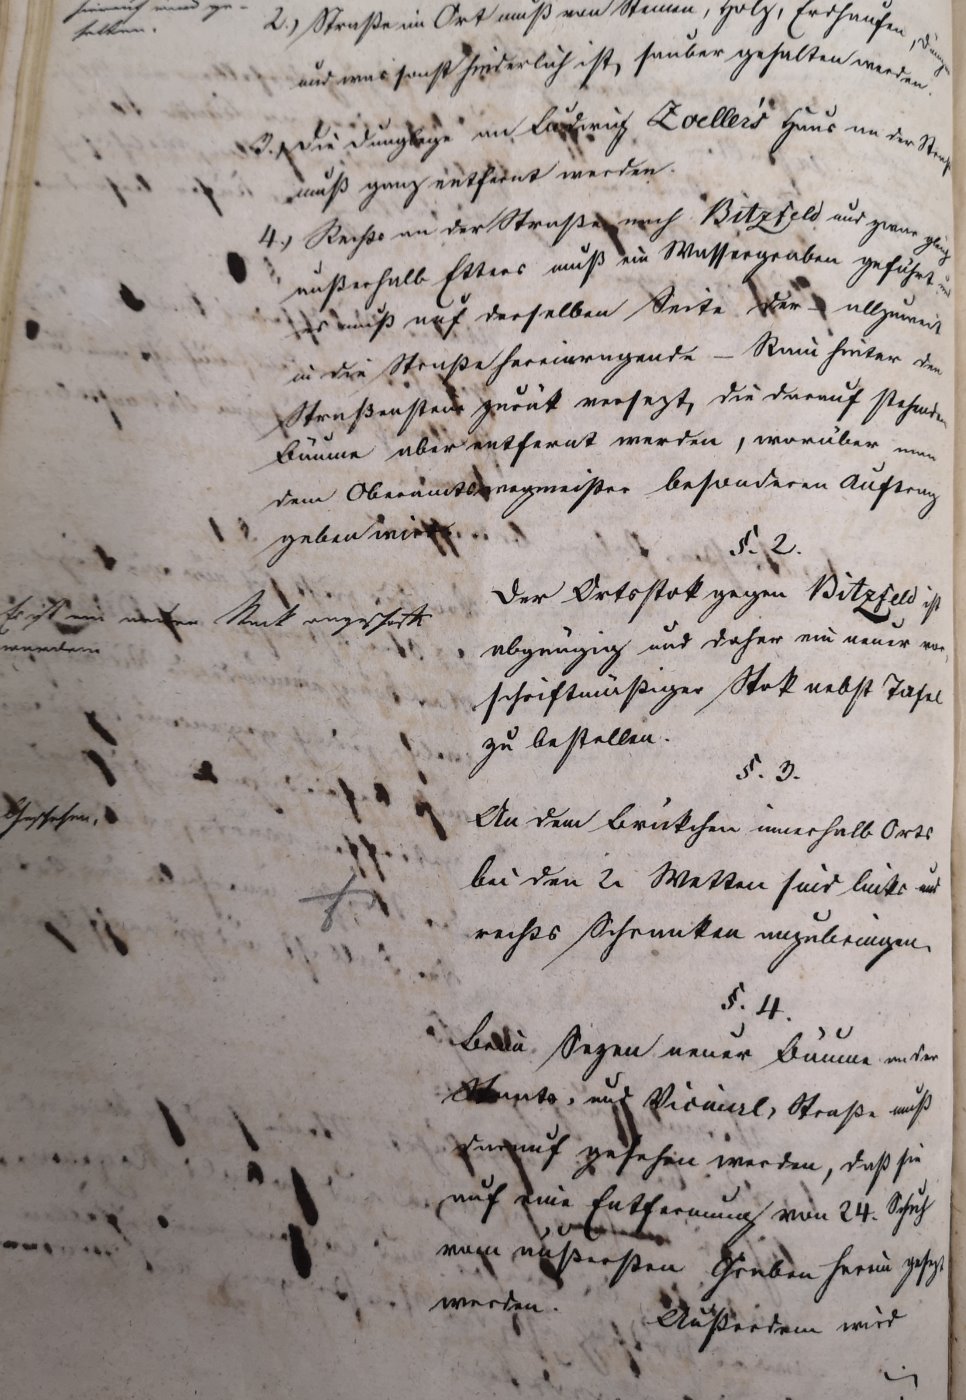 hienach wird ge-
halten.
2.) Straße im Ort muß von Steinen, Holz, Erdhaufen, Dung
und was sonst hinderlich ist, sauber gehalten werden.
3.) Die Dunglege an Ludwig Zoeller's Haus an der Straße
muß ganz entfernt werden.
4.) Rechts an der Straße nach Bitzfeld und zwar gleich
außerhalb Etters muß ein Wassergraben geführt und
es muß auf derselben Seite der – allzuweit
in die Straße hereinragende – Rain hinter den
Straßenstein zurük versezt, die darauf stehenden
Bäume aber entfernt werden, worüber man
dem Oberamtswegmeister besonderen Auftrag
geben wird.
§. 2.
Der Ortsstok gegen Bitzfeld ist
abgängig und daher ein neuer vor-
schriftmäßiger Stok nebst Tafel
zu bestellen.
Es ist ein neuer Stock angeschafft
worden
§. 3.
An dem Brükchen innerhalb Orts
bei den 2 Wetten sind links und
rechts Schranken anzubringen.
Geschehen.
§. 4.
Beim Sezen neuer Bäume an der
Staats- und Vicinal-Straße muß
darauf gesehen werden, daß sie
auf eine Entfernung von 24. Schuh
vom äußersten Graben herein gesezt
werden.
Außerdem wird